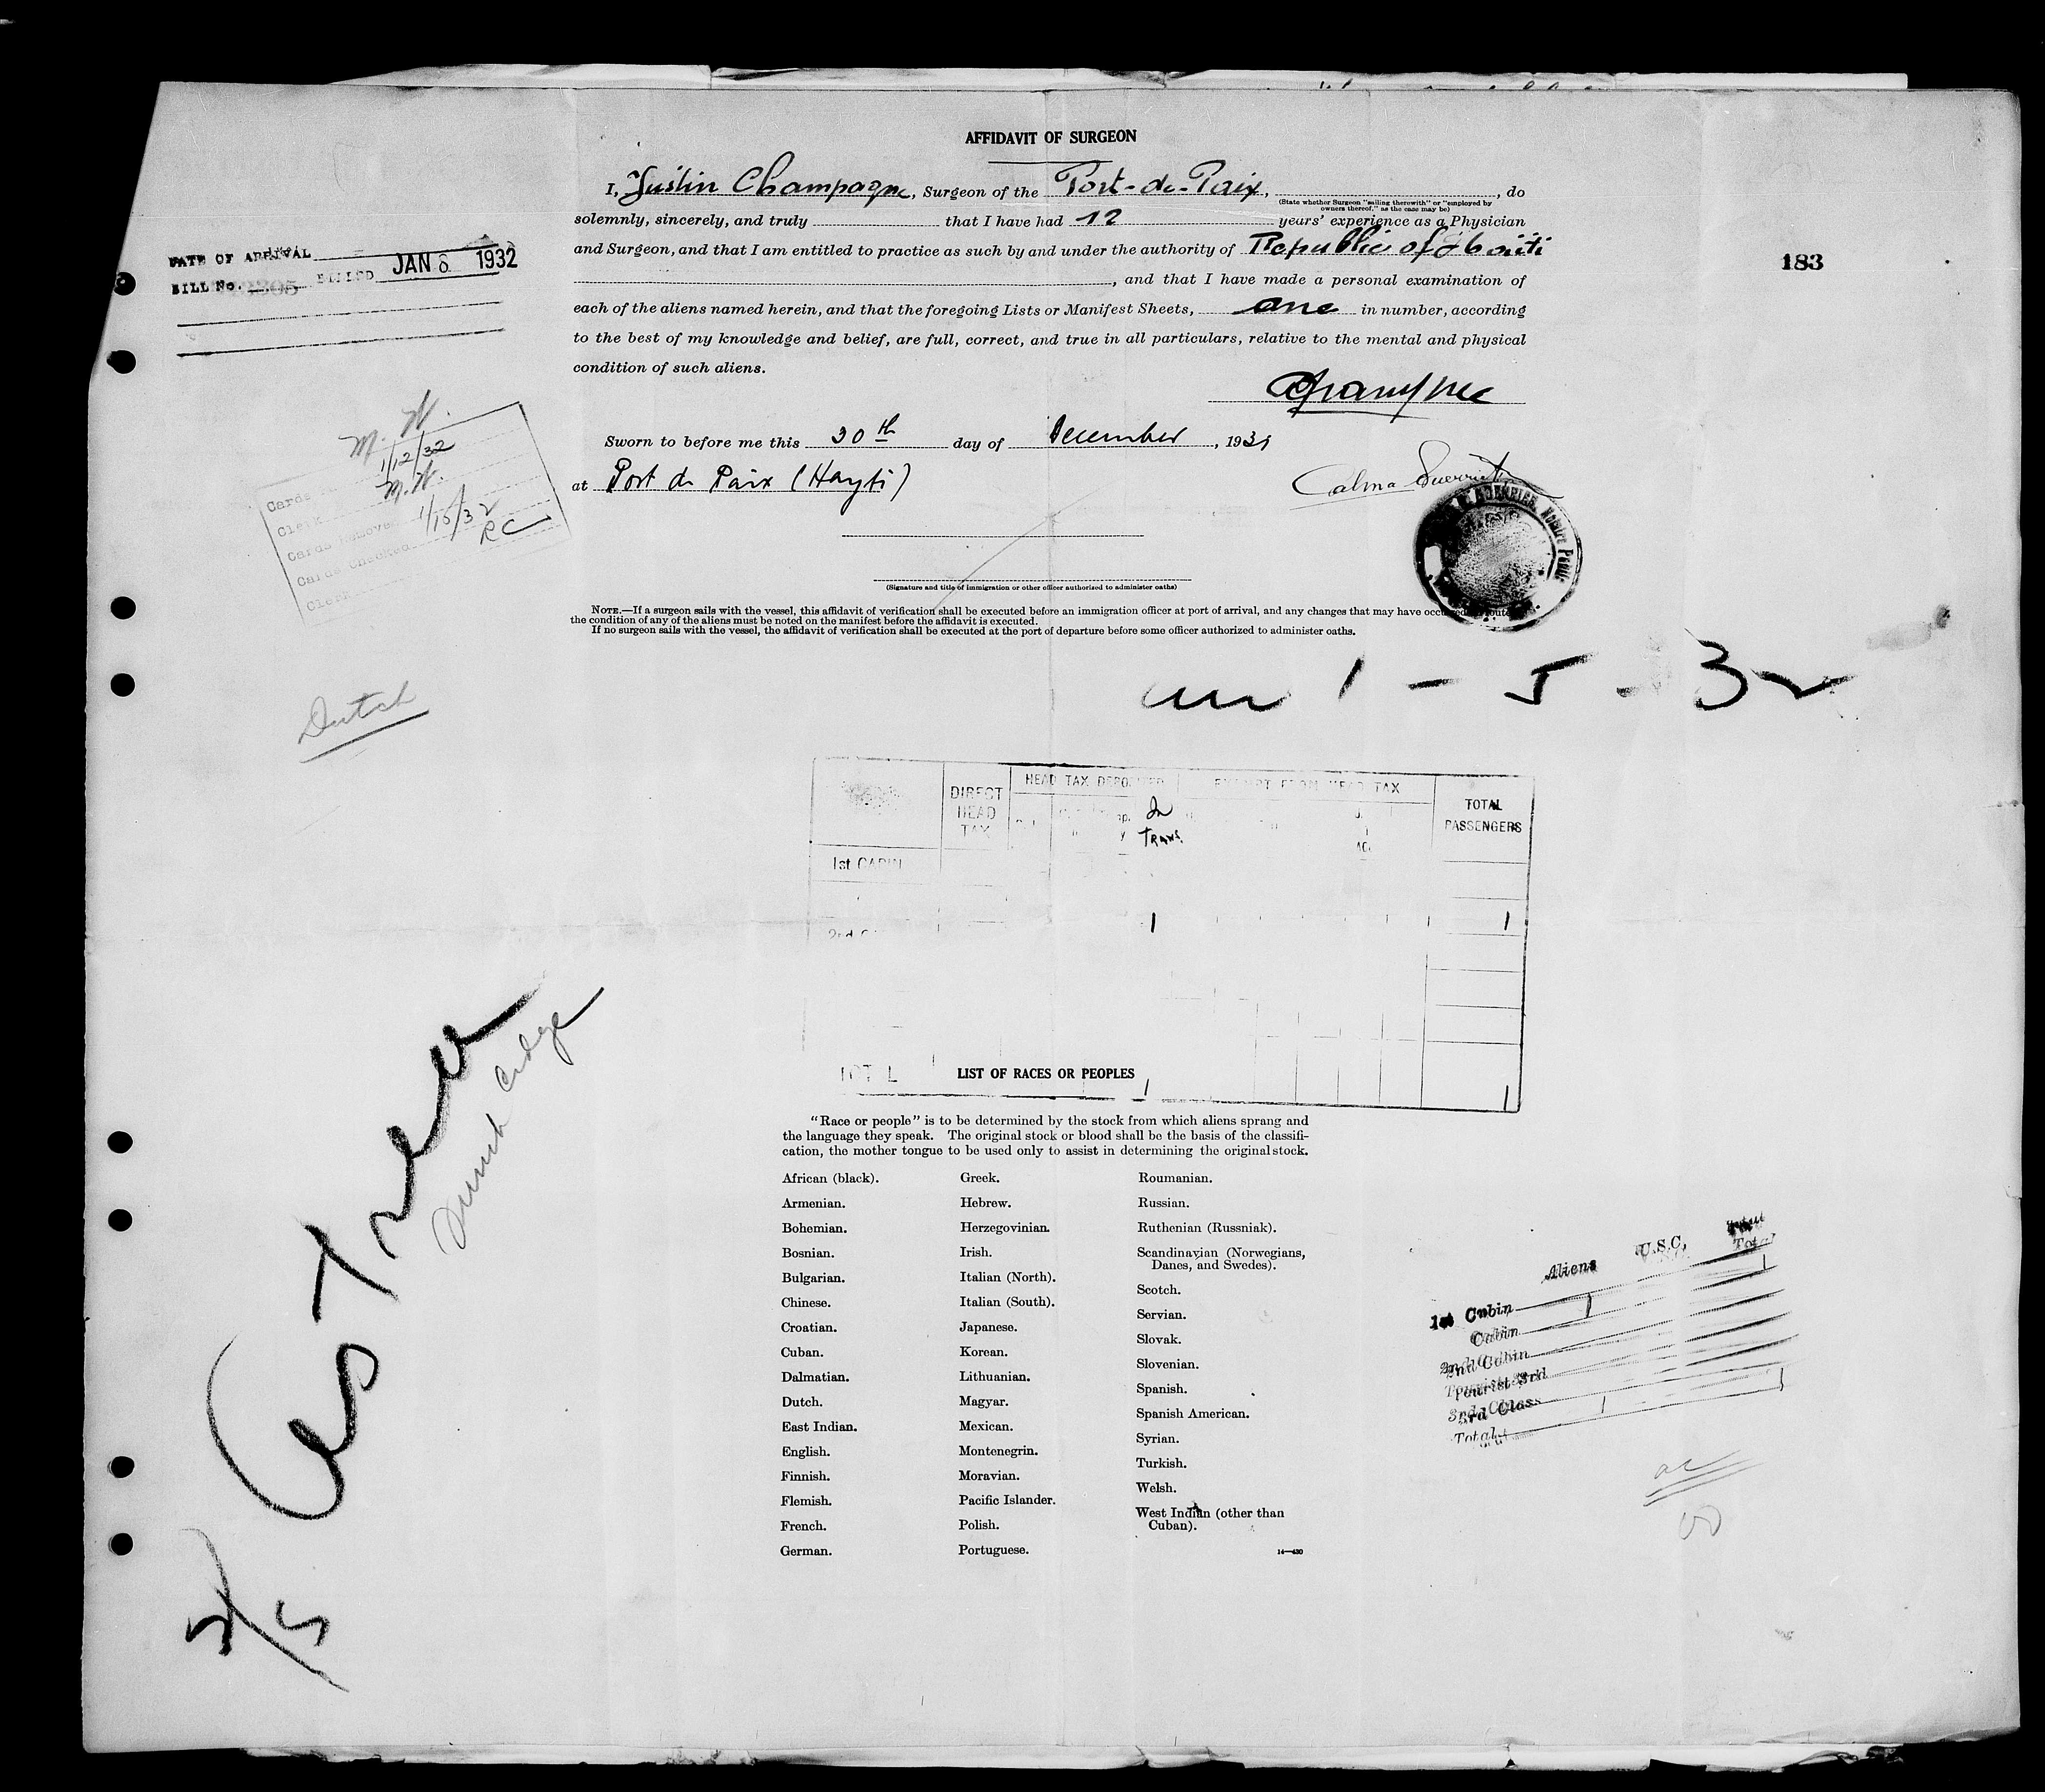 AFFIDAVIT OF SURGEON
I, Justin Champagne, Surgeon of the Port-de-Paix, , do
(State whether Surgeon "sailing therewith" or "employed by
owners thereof," as the case may be)
solemnly, sincerely, and truly that I have had 12 years' experience as a Physician
and Surgeon, and that I am entitled to practice as such by and under the authority of Republic of Haiti
, and that I have made a personal examination of
each of the aliens named herein, and that the foregoing Lists or Manifest Sheets, one in number, according
to the best of my knowledge and belief, are full, correct, and true in all particulars, relative to the mental and physical
condition of such aliens.
Sworn to before me this 30th day of December, 1931
at Port de Paix (Hayti)
(Signature and title of immigration or other officer authorized to administer oaths)
NOTE.—If a surgeon sails with the vessel, this affidavit of verification shall be executed before an immigration officer at port of arrival, and any changes that may have
the condition of any of the aliens must be noted on the manifest before the affidavit is executed.
If no surgeon sails with the vessel, the affidavit of verification shall be executed at the port of departure before some officer authorized to administer oaths.
DATE OF ARRIVAL
BILL No. BILLED JAN 8 1932
183
M. W.
1/12/32
M. W.
1/15/32
RC
Cards
Clerk
Cards Removed
Cards Checked
Clerk
Dutch
1 - 5 - 32
DIRECT HEAD TAX
HEAD TAX DEPOSITED
EXEMPT FROM HEAD TAX
TOTAL PASSENGERS
In Trans.
1st CABIN
1 1
2nd
TOTAL 1 1
LIST OF RACES OR PEOPLES
"Race or people" is to be determined by the stock from which aliens sprang and
the language they speak. The original stock or blood shall be the basis of the classifi-
cation, the mother tongue to be used only to assist in determining the original stock.
African (black).
Armenian.
Bohemian.
Bosnian.
Bulgarian.
Chinese.
Croatian.
Cuban.
Dalmatian.
Dutch.
East Indian.
English.
Finnish.
Flemish.
French.
German.
Greek.
Hebrew.
Herzegovinian.
Irish.
Italian (North).
Italian (South).
Japanese.
Korean.
Lithuanian.
Magyar.
Mexican.
Montenegrin.
Moravian.
Pacific Islander.
Polish.
Portuguese.
Roumanian.
Russian.
Ruthenian (Russniak).
Scandinavian (Norwegians,
Danes, and Swedes).
Scotch.
Servian.
Slovak.
Slovenian.
Spanish.
Spanish American.
Syrian.
Turkish.
Welsh.
West Indian (other than
Cuban).
14—430
Aliens U.S.C. Total
1st Cabin 1 1
Cabin
2nd Cabin
Tourist 3rd
3rd Class
Total 1 1